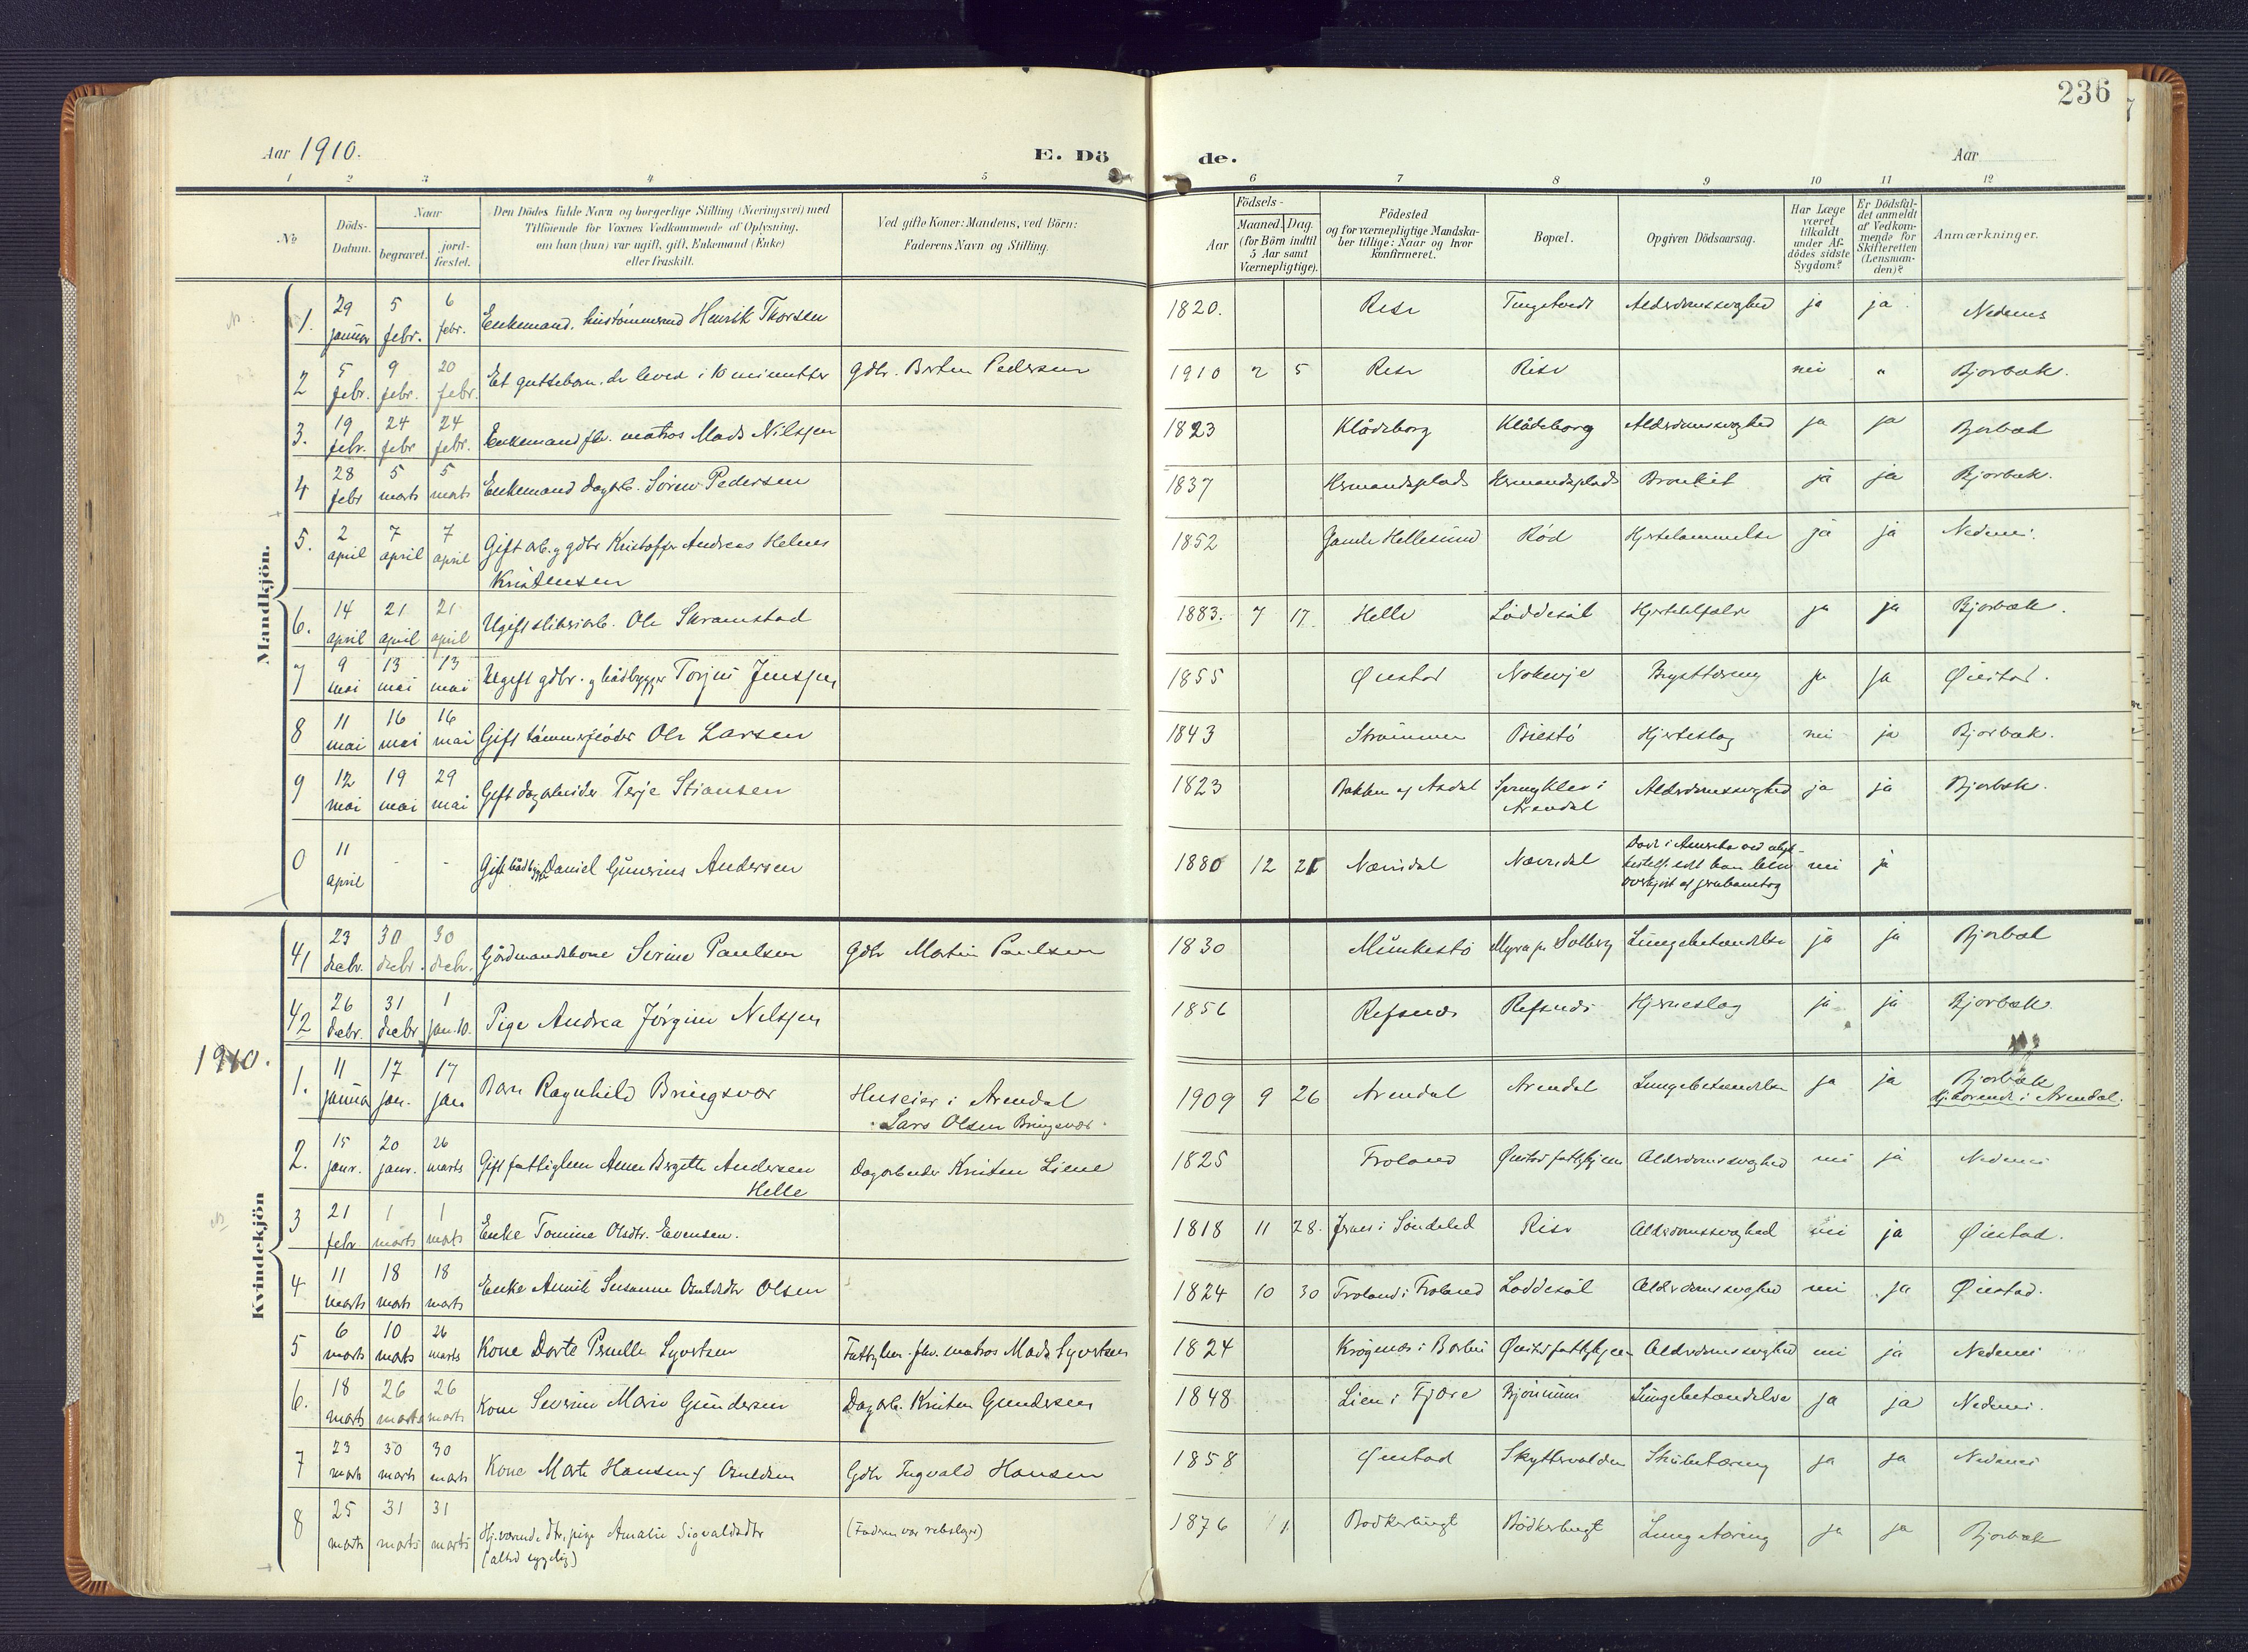 236
Aar 1910.
E. Dö de.
Aar
1 2 3 4 5 6 7 8 9 10 11 12
No
Döds-Datum.
Naar
begravet.
jord-fæstet.
Den Dödes fulde Navn og borgerlige Stilling (Næringsvei) med
Tilföiende for Voxnes Vedkommende af Oplysning,
om han (hun) var ugift, gift, Enkemand (Enke)
eller fraskilt.
Ved gifte Koner: Mandens, ved Börn:
Faderens Navn og Stilling.
Födsels-
Aar
Maaned. Dag.
(for Börn indtil
5 Aar samt
Værnepligtige).
Födested
og for værnepligtige Mandska-
ber tillige: Naar og hvor
konfirmeret.
Bopæl.
Opgiven Dödsaarsag.
Har Læge
været
tilkaldt
under Af-
dödes sidste
Sygdom?
Er Dödsfal-
det anmeldt
af Vedkom-
mende for
Skifteretten
(Lensman-
den)?
Anmærkninger.
Mandkjön.
1. 29 januar 5 febr. 6 febr. Enkemand, Henrik Thorsen 1820. Alderdomssvaghed ja ja Nedenes
2 5 febr. 9 febr. 20 febr. Et guttebarn, der leved i 10 minutter gdbr. Berten Pedersen 1910 2 5 nei " Bjorbæk.
3. 19 febr. 24 febr 24 febr. Enkemand fhv. matros Mads Nilssen 1823 Klådeborg Klådeborg Alderdomssvaghed ja ja Bjorbæk
4 28 febr 5 marts 5 marts Enkemand dagarb. Sören Pedersen 1837 Bronkit ja ja Bjorbæk.
5. 2 april 7 april 7 april Gift arb. og gdbr Kristoffer Andreas Helmer
Kristensen 1852 Gamle Hellesund Röd Hjertelammelse ja ja Nedenes.
6. 14 april 21 april 21 april Ugift Ole Skramstad 1883. 7 17. Helle Löddesöl Hjertefeil ja ja Bjorbæk.
7 9 mai 13 mai 13 mai Ugift gdbr. og bådbygger Torjus Jenssen 1855 Öiestad Nokevje Brysttæring ja ja Öiestad.
8 11 mai 16 mai 16 mai Gift Ole Larsen 1843 Strömmen Biestö Hjerteslag nei ja Bjorbæk.
9 12 mai 19 mai 29 mai Gift dagarbeider Terje Stiansen 1823 Bakken af Asdal i
Arendal Alderdomssvaghed ja ja Bjorbæk.
0 11 april - - Gift bådbygger Daniel Gunerius Andersen 1880 12 21 Nævisdal Nævisdal Döde i Amerika ved
han blev
overkjört af jernbanetog nei ja
Kvindekjön
41 23 decbr. 30 decbr. 30 decbr. Gårdmandskone Serine Paulsen Gdbr Martin Paulsen 1830 Munkestö Myra pr Solberg Lungebetændelse ja ja Bjorbæk
42 26 decbr. 31 decbr 1 jan. 10. Pige Andrea Jörgine Nelssen 1856 Refsnes Refsnes Hjerneslag ja ja Bjorbæk.
1910.
1. 11 januar 17 jan. 17 jan Barn Ragnhild Bringsvær Huseier i Arendal
Lars Olsen Bringsvær. 1909 9 26 Arendal Arendal Lungebetændelse ja ja Bjorbæk
Hj.hörende i Arendal.
2. 15 janr. 20 janr. 26 marts Gift fattiglem Anne Birgitte Andersen
Helle Dagarbeider Kristen Liene 1825 Froland Alderdomssvaghed nei ja Nedenes
3 21 febr. 1 marts 1 marts Enke Tomine Olsdtr. Evensen. 1818 11 28. i Söndeled Alderdomssvaghed nei ja Öiestad.
4 11 marts 18 marts 18 marts Enke Susanne Osuldsdtr Olsen 1824 10 30 Froland i Froland Löddesöl Alderdomssvaghed nei ja Öiestad.
5 6 marts 10 marts 26 marts Kone Dorte Pernille Syvertsen Fattiglem fhv. matros Mads Syvertsen 1824 Krögenæs i Barbu Alderdomssvaghed nei ja Nedenes
6. 18 marts 26 marts 26 marts Kone Severine Marie Gundersen Dagarb. Kristen Gundersen 1848 Lien i Fjære Björnnum Lungebetændelse ja ja Nedenes.
7 23 marts 30 marts 30 marts Kone Marte Hansen f Osuldsen Gdbr Ingvald Hansen 1858 Öiestad Skyttervolden Strubetæring ja ja Nedenes
8 25 marts 31 marts 31 marts Hj.værende dtr, pige Amalie Sigvaldsdtr
(altid sygelig) (Faderen var rebslager) 1876 11 Bödkerbugt Bödkerbugt Lungetæring ja ja Bjorbæk